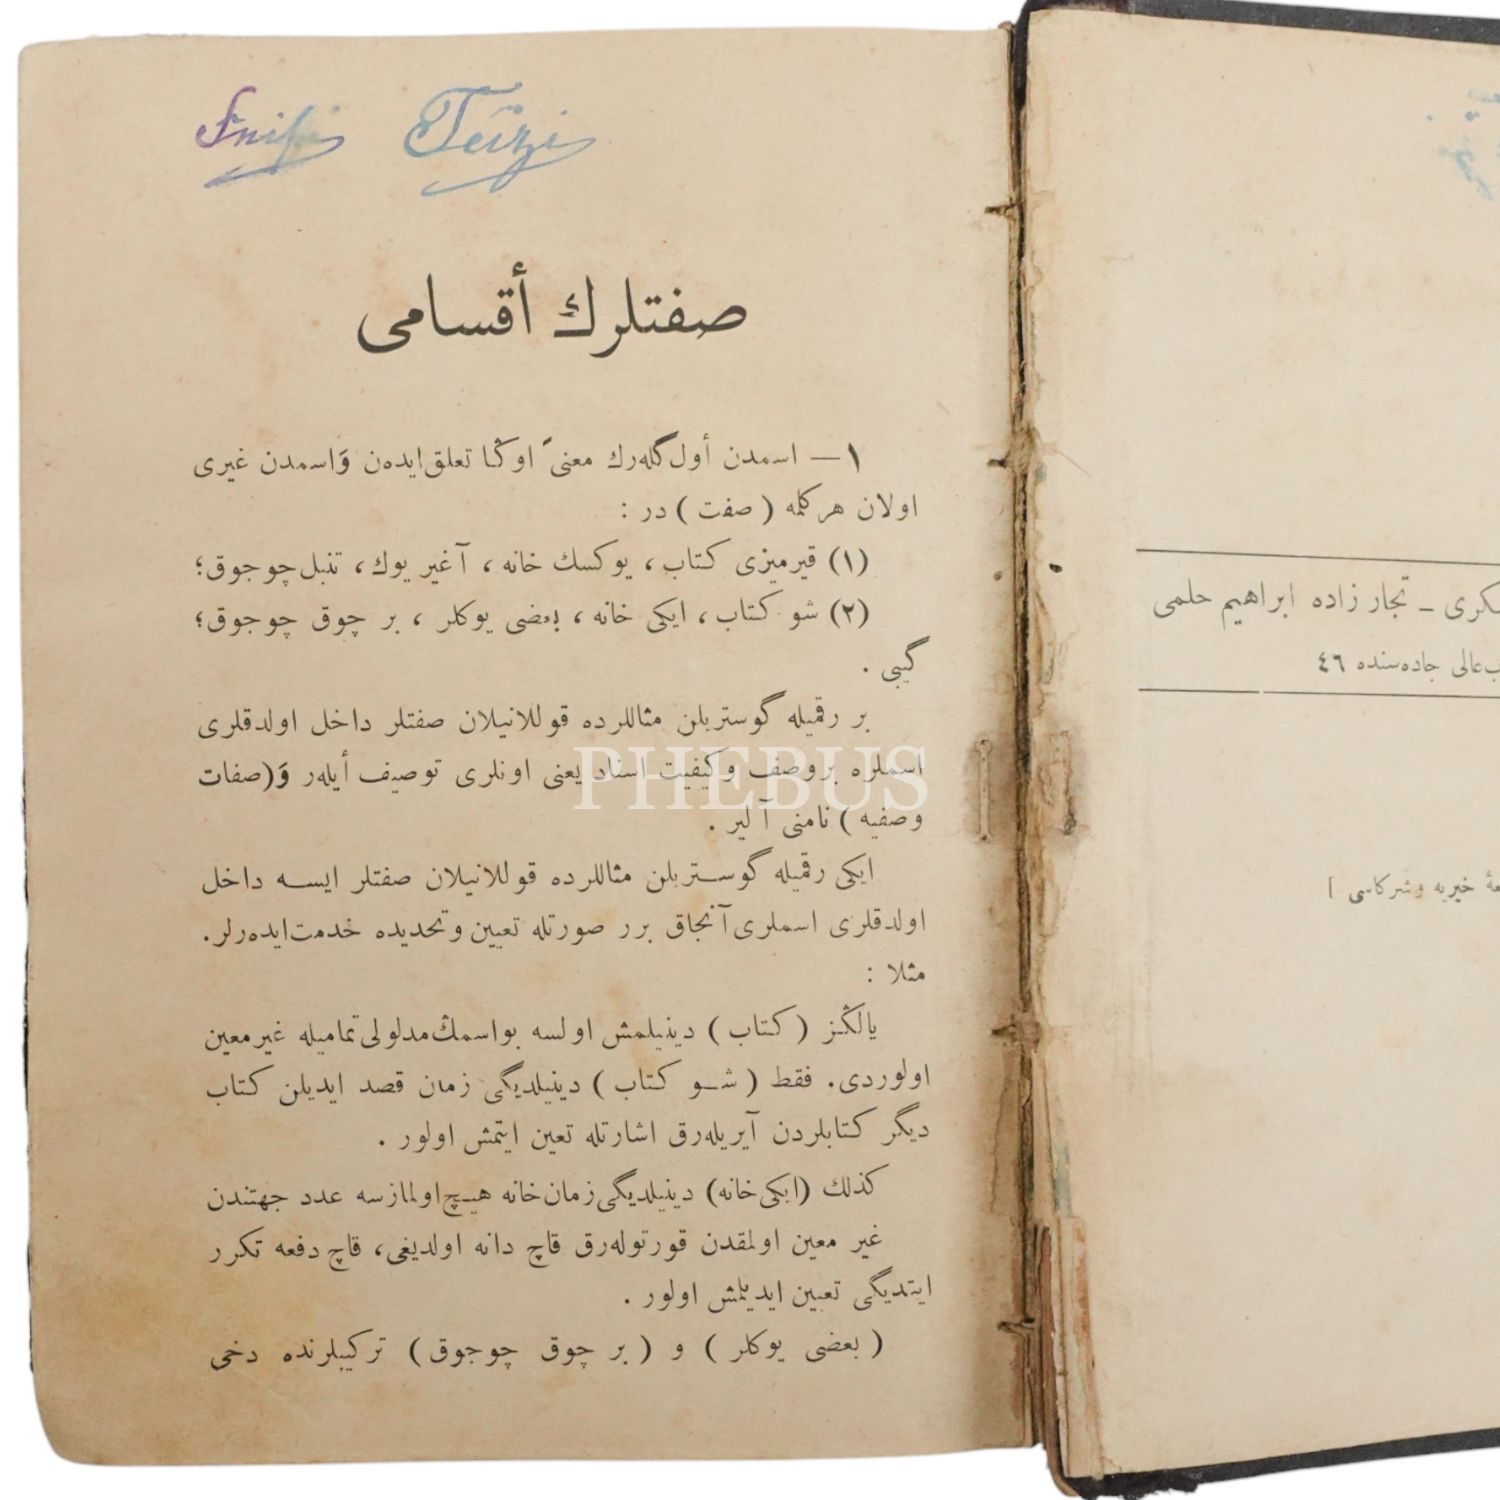 صفتلرك أقسامی
١ — اسمدن أول گله‌رك معنیً اوڭا تعلق ایده‌ن وَاسمدن غیری
اولان هر کلمه ( صفت ) در :
(١) قیرمیزی کتاب ، یوکسك خانه ، آغیر یوك ، تنبل چوجوق ؛
(٢) شو کتاب ، ایکی خانه ، بعضی یوکلر ، بر چوق چوجوق ؛
گیبی .
بر رقمیله گوستریلن مثاللرده قوللانیلان صفتلر داخل اولدقلری
اسملره بروصف وکیفیت اسناد یعنی اونلری توصیف أیلەر وَ(صفات
وصفیه ) نامنی آلیر .
ایکی رقمیله گوستریلن مثاللرده قوللانیلان صفتلر ایسه داخل
اولدقلری اسملری آنجاق برر صورتله تعیین وتحدیده خدمت‌ایده‌رلر.
مثلا :
یالڭز ( کتاب ) دینیلمش اولسه بواسمڭ مدلولی تمامیله غیرمعین
اولوردی. فقط ( شو کتاب ) دینیلدیگی زمان قصد ایدیلن کتاب
دیگر کتابلردن آیریله‌رق اشارتله تعین ایتمش اولور .
کذلك (ایکی خانه) دینیلدیگی زمان خانه هیچ اولمازسه عدد جهتندن
غیر معین اولمقدن قورتوله‌رق قاچ دانه اولدیغی، قاچ دفعه تکرر
ایتدیگی تعیین ایدیلمش اولور .
( بعضی یوکلر ) و ( بر چوق چوجوق ) ترکیبلرنده دخی
PHEBUS
تجار زاده ابراهیم حلمی
جاده‌سنده ٤٦
خیریه وشرکاسی ]